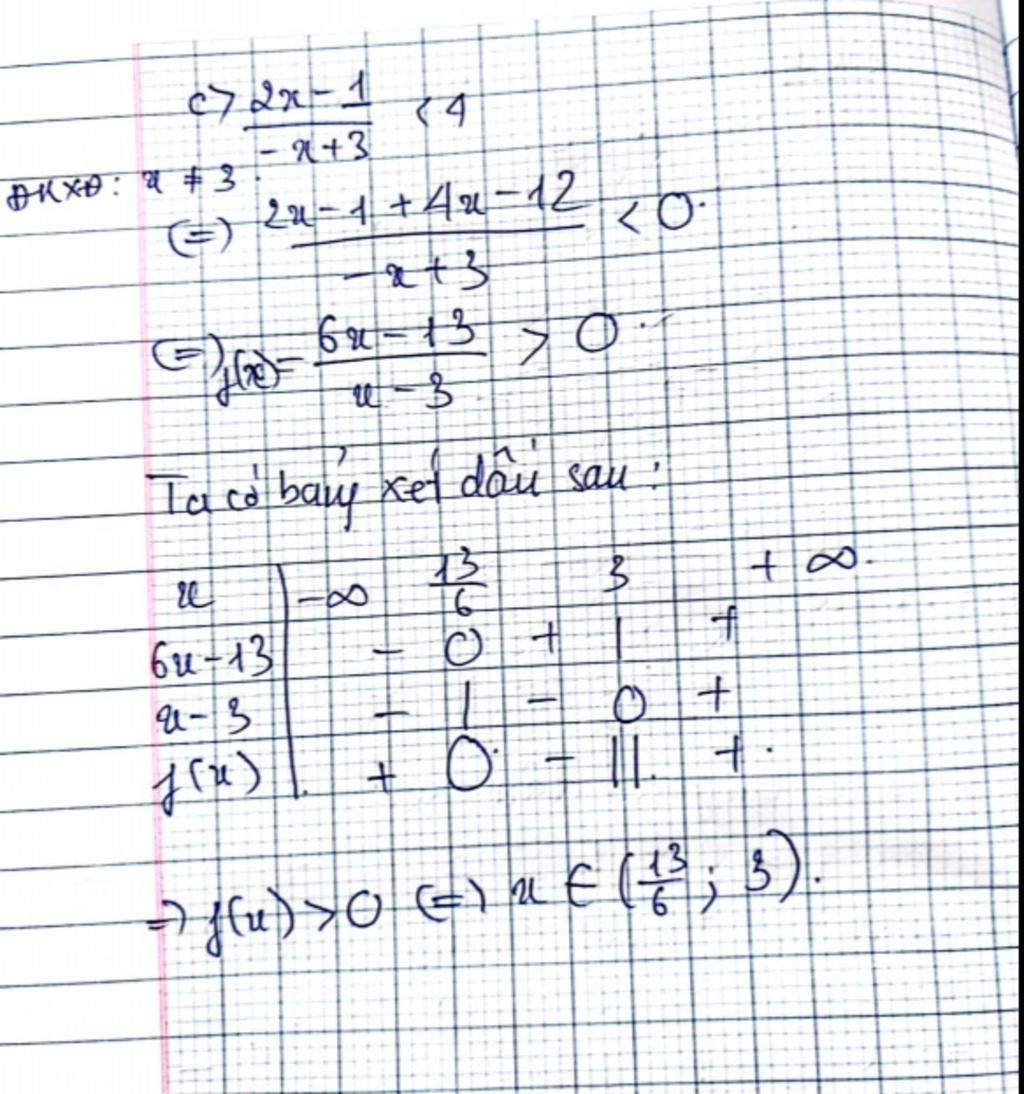 c> (2x-1)/(-x+3) < 4
ĐKXĐ: x ≠ 3
(=) (2x-1+4x-12)/(-x+3) < 0
(=) f(x) = (6x-13)/(x-3) > 0
Ta có bảng xét dấu sau:
x | -∞ 13/6 3 +∞
6x-13 | - 0 + | +
x-3 | - | - 0 +
f(x) | + 0 - || +
=> f(x) > 0 (=) x ∈ (13/6 ; 3).